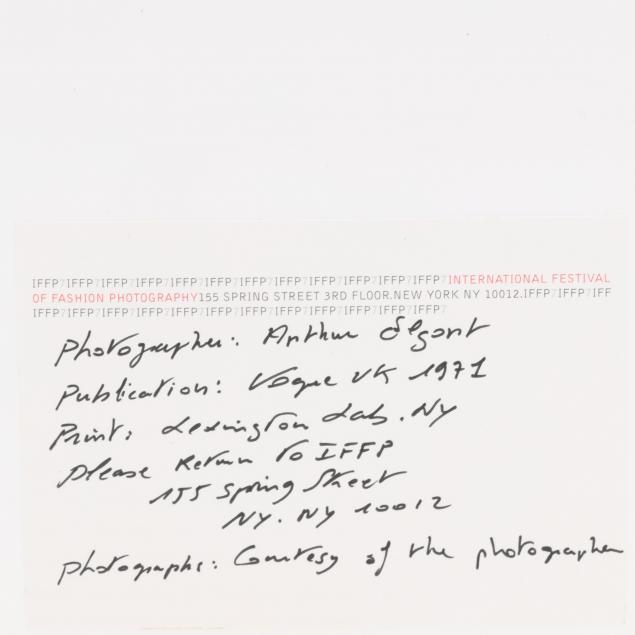 IFFP7IFFP7IFFP7IFFP7IFFP7IFFP7IFFP7IFFP7IFFP7IFFP7IFFP7IFFP7INTERNATIONAL FESTIVAL
OF FASHION PHOTOGRAPHY155 SPRING STREET 3RD FLOOR.NEW YORK NY 10012.IFFP7IFFP7IFF
IFFP7IFFP7IFFP7IFFP7IFFP7IFFP7IFFP7IFFP7IFFP7IFFP7IFFP7IFFP7
Photographer: Arthur Elgort
Publication: Vogue UK 1971
Print: Lexington Lab. NY
Please Return to IFFP
155 Spring Street
NY. NY 10012
Photographs: Courtesy of the photographer